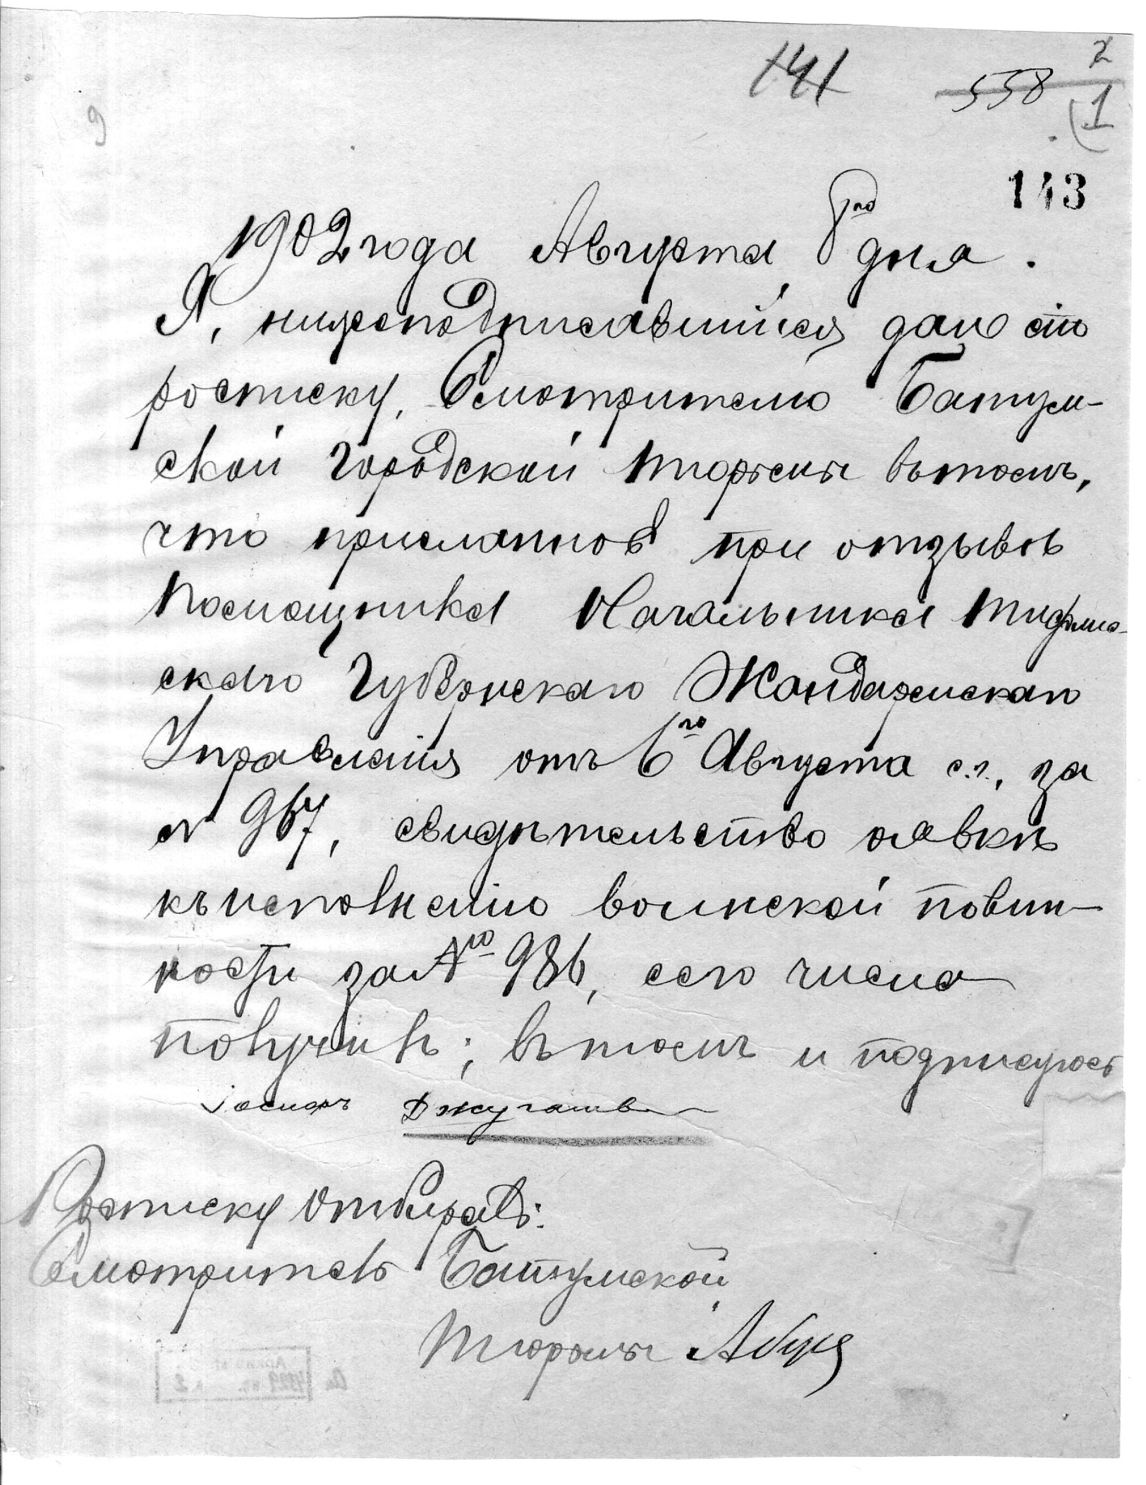 141
558
2
1
143
9
1902 года Августа 8го дня.
Я, нижеподписавшійся даю сію
росписку, Смотрителю Батум-
ской городской тюрьмы вътомъ,
что присланное при отзывѣ
Помощника Начальника Тифлис-
скаго Губернскаго Жандармскаго
Управленія отъ 6го Августа с.г., за
№ 967, свидѣтельство оявкѣ
къисполненію воинской повин-
ности за № 986, сего числа
получилъ; вътомъ и подписуюсь
Іосифъ Джугашв
Росписку отбиралъ:
Смотритель Батумской
тюрьмы